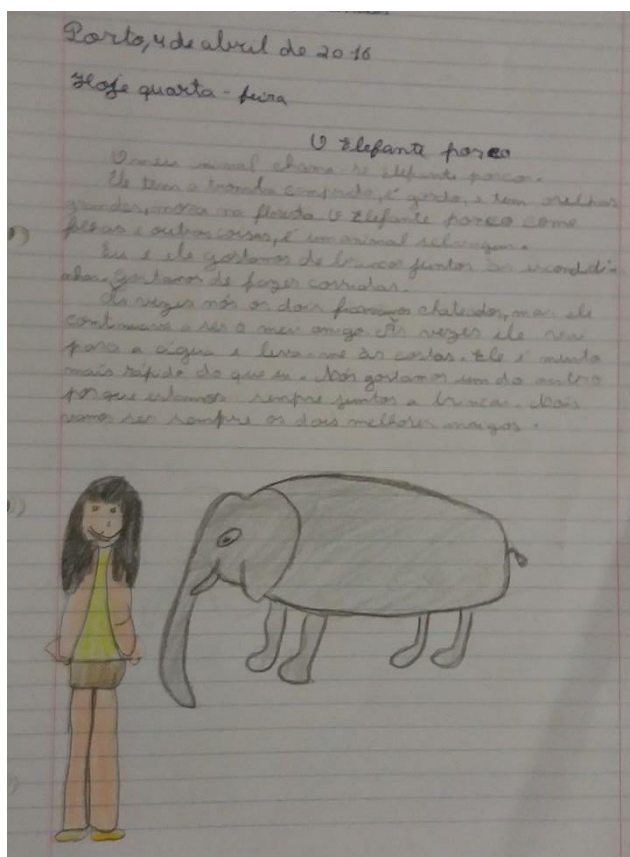 Porto, 4 de abril de 2016
Hoje quarta-feira
O Elefante porco
O meu animal chama-se elefante porco.
Ele tem a tromba comprida, é gordo, e tem orelhas
grandes, mora na floresta. O Elefante porco come
e outras coisas, é um animal selvagem.
Eu e ele gostamos de brincar juntos às escondidi-
nhas. Gostamos de fazer corridas.
Às vezes nós os dois ficamos chateados, mas ele
continuava a ser o meu amigo. Às vezes ele vai
para a água e leva-me às costas. Ele é muito
mais rápido do que eu. Nós gostamos um do outro
porque estamos sempre juntos a brincar. Nois
vamos ser sempre os dois melhores amigos.